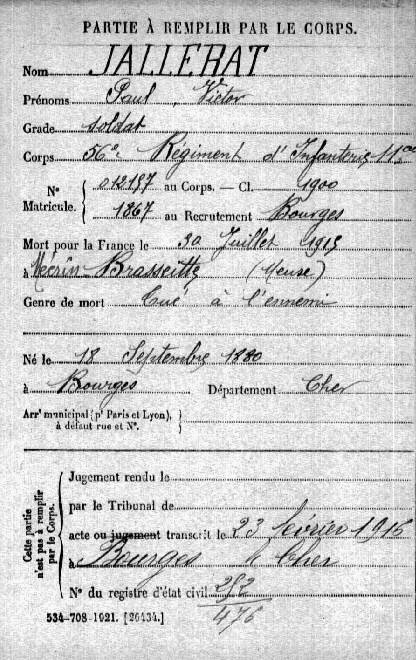 PARTIE À REMPLIR PAR LE CORPS.
Nom JALLERAT
Prénoms Paul, Victor
Grade soldat
Corps 56e Régiment d'Infanterie 11e Cie
N° Matricule. { 012197 au Corps. — Cl. 1900
1867 au Recrutement Bourges
Mort pour la France le 30 Juillet 1915
à Mécrin-Brasseitte (Meuse)
Genre de mort Tué à l'ennemi
Né le 18 Septembre 1880
à Bourges Département Cher
Arrt municipal (pr Paris et Lyon), à défaut rue et N°. }
Cette partie n'est pas à remplir par le Corps. {
Jugement rendu le
par le Tribunal de
acte ou jugement transcrit le 23 février 1916
à Bourges Cher
N° du registre d'état civil 282
476
534-708-1921. [26434.]